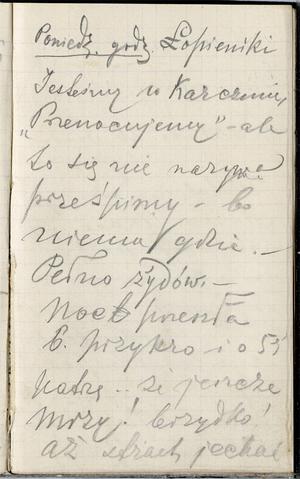 Poniedz. godz. Łopienki
Jesteśmy w Karczmie
„Przenocujemy” – ale
to się nie nazywa
prześpimy – bo
niema gdzie. –
Pełno żydów. –
Noc przeszła
b. przykro – i o 5½
patrzę .. że jeszcze
mrozy! brzydko!
aż strach jechać